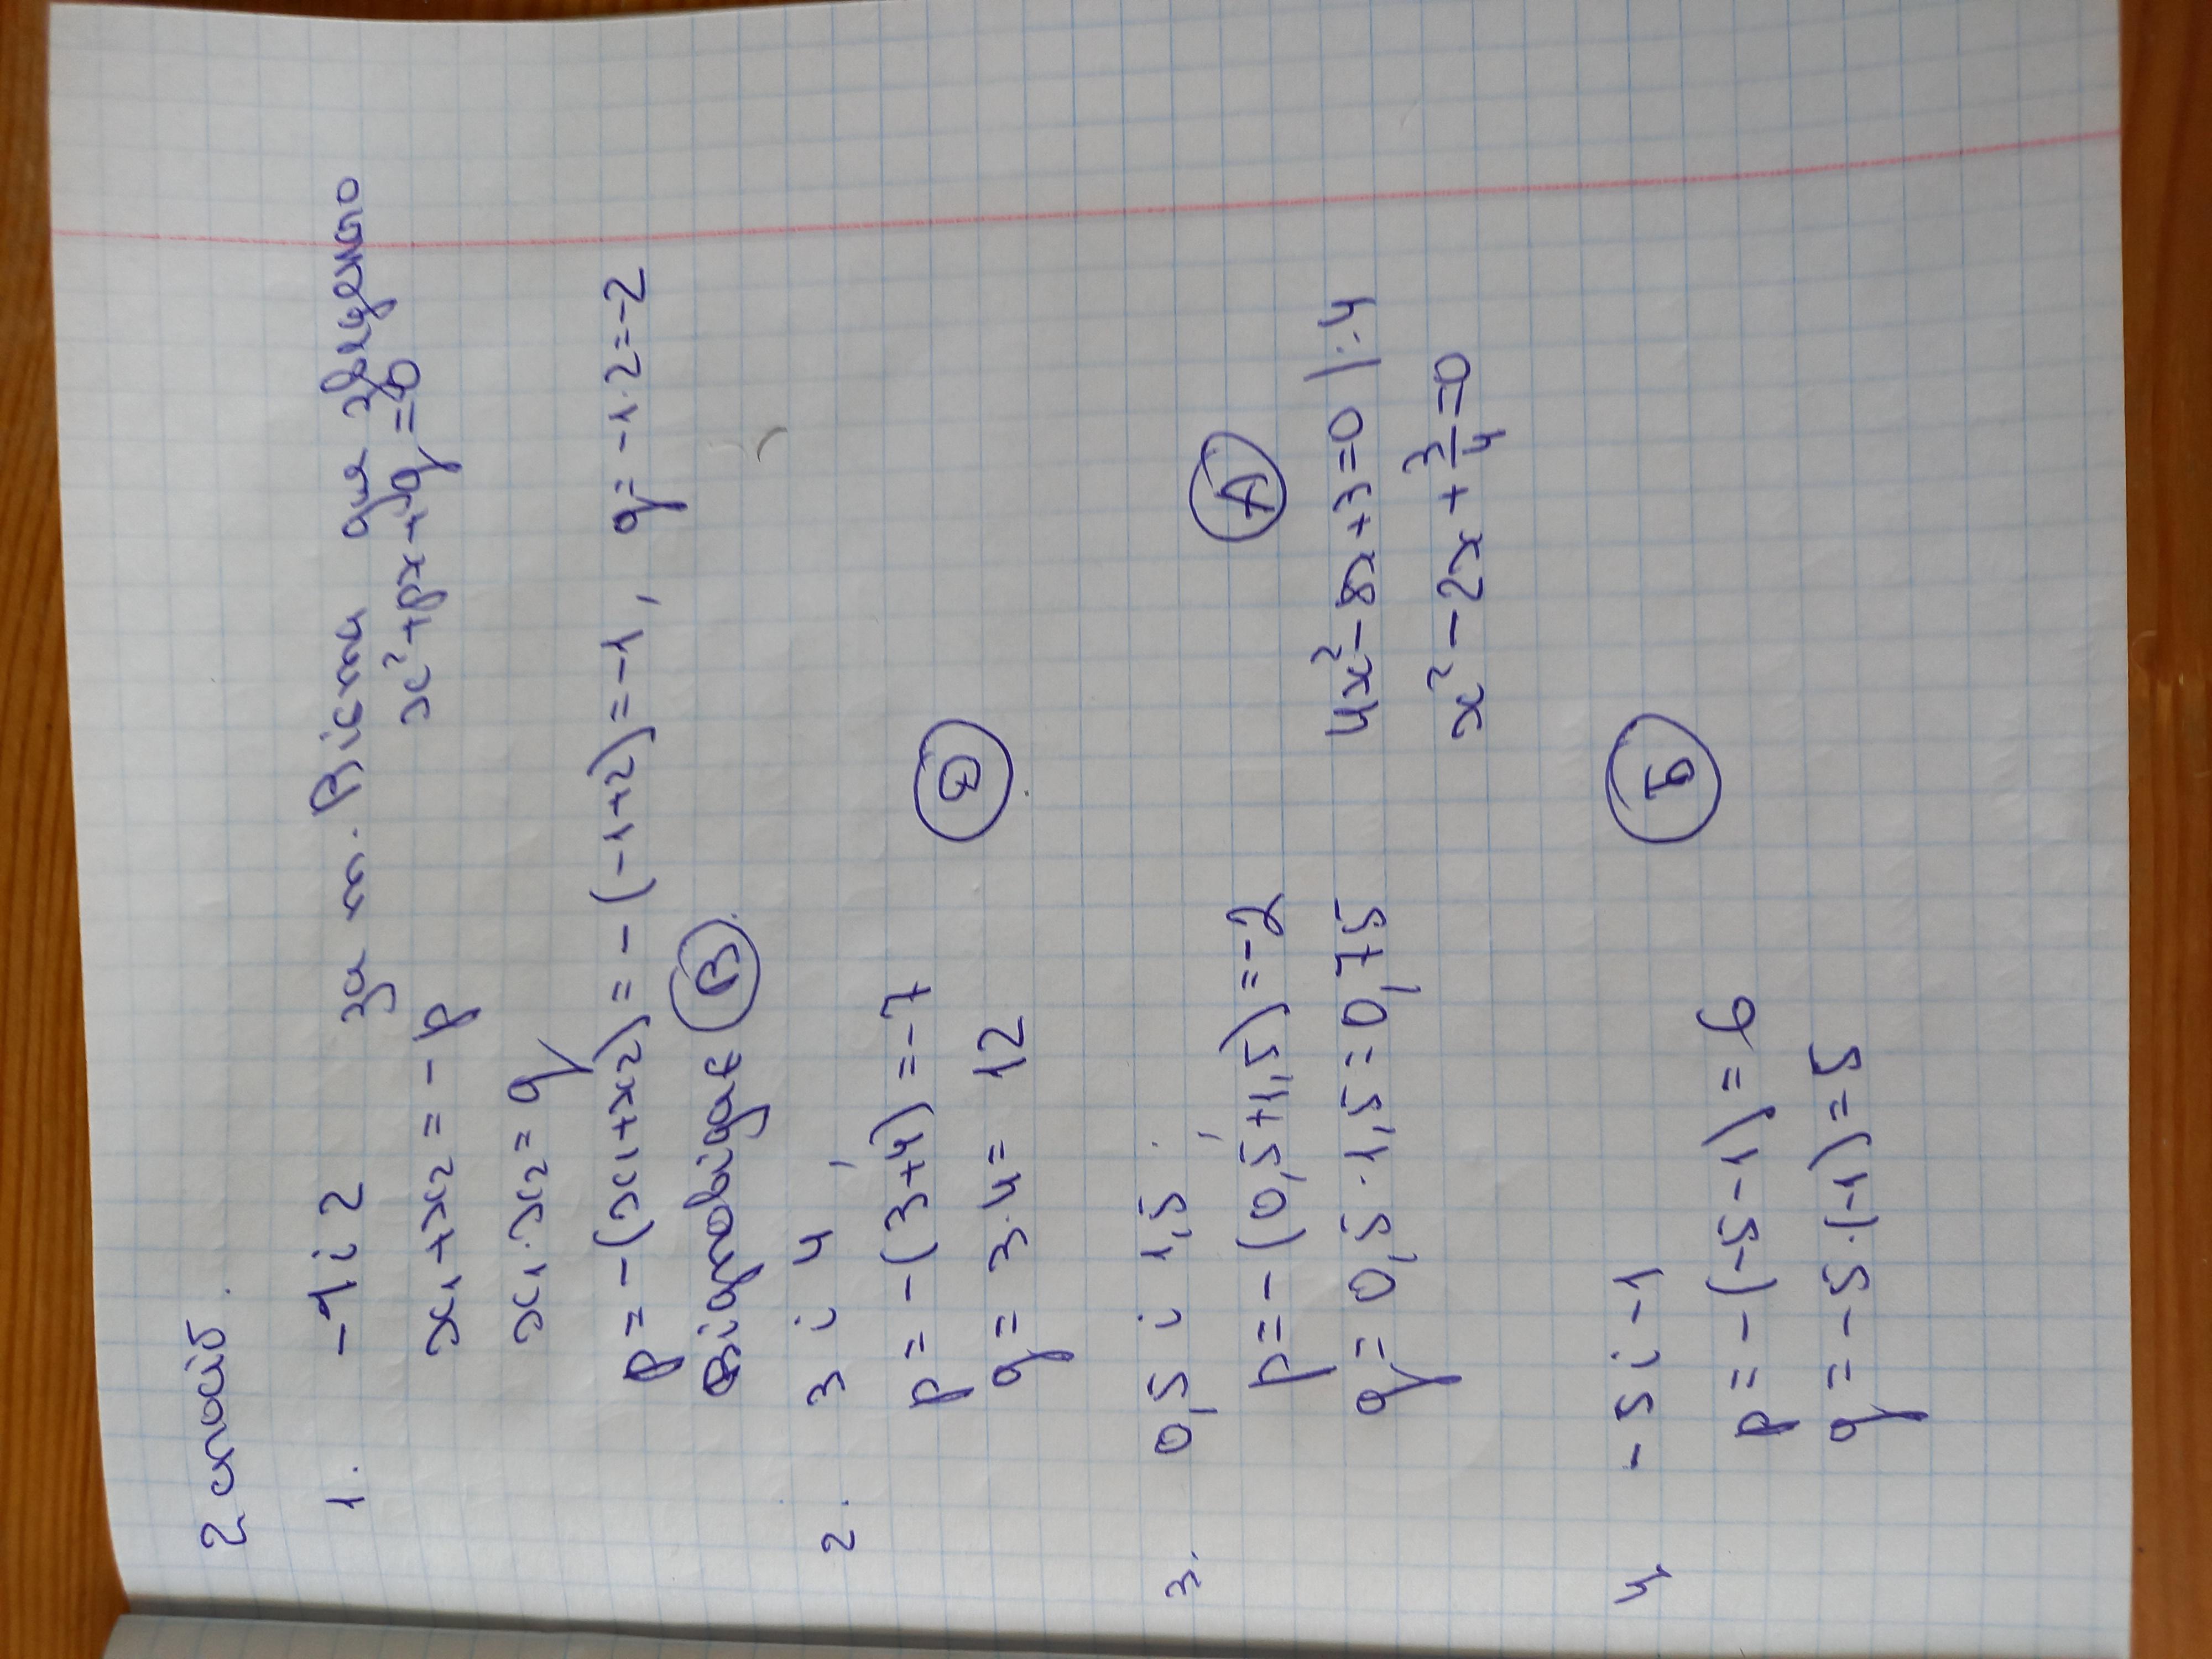 2 спосіб.
1. -1 і 2 за т. Вієта для зведеного
x₁+x₂ = -p x²+px+q=0
x₁·x₂ = q
p = -(x₁+x₂) = -(-1+2) = -1, q = -1·2=-2
Відповідає В
2. 3 і 4,
p = -(3+4) = -7 Д
q = 3·4 = 12
3. 0,5 і 1,5
p = -(0,5+1,5) = -2 А
q = 0,5·1,5 = 0,75 4x²-8x+3=0 |:4
x²-2x+3/4=0
4 -5 і -1 Б
p = -(-5-1) = 6
q = -5·(-1) = 5